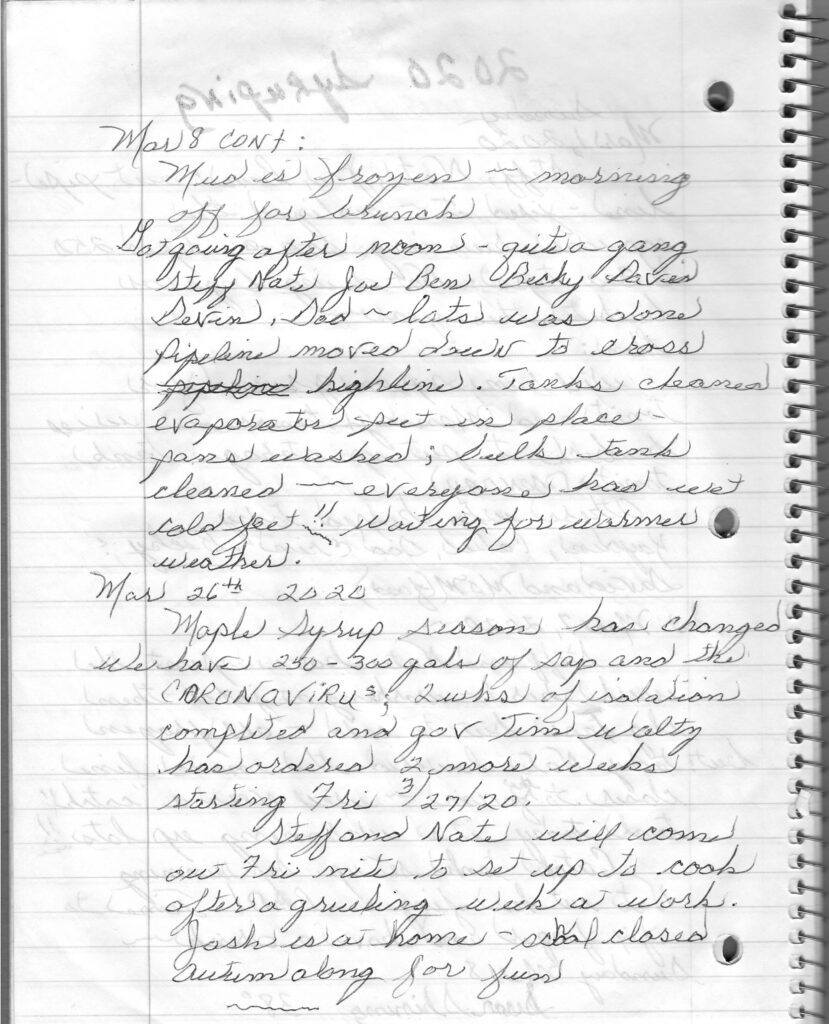 Mar 8 cont:
Mud is frozen ~ morning
off for brunch
Got going after noon - quite a gang
Steff Nate Joe Ben Becky
Devin, Dad ~ lots was done
Pipeline moved down to cross
pipeline highline. Tanks cleaned
evaporator set in place -
pans washed; bulk tank
cleaned ~ everyone had wet
cold feet!! Waiting for warmer
weather.
Mar 26th 2020
Maple Syrup season has changed
We have 250-300 gals of sap and the
CORONAViRUs; 2 wks of isolation
completed and gov Tim Walty
has ordered 2 more weeks
starting Fri 3/27/20.
Steff and Nate will come
out Fri nite to set up to cook
after a grueling week at work.
Josh is at home - school closed
Autum along for fun